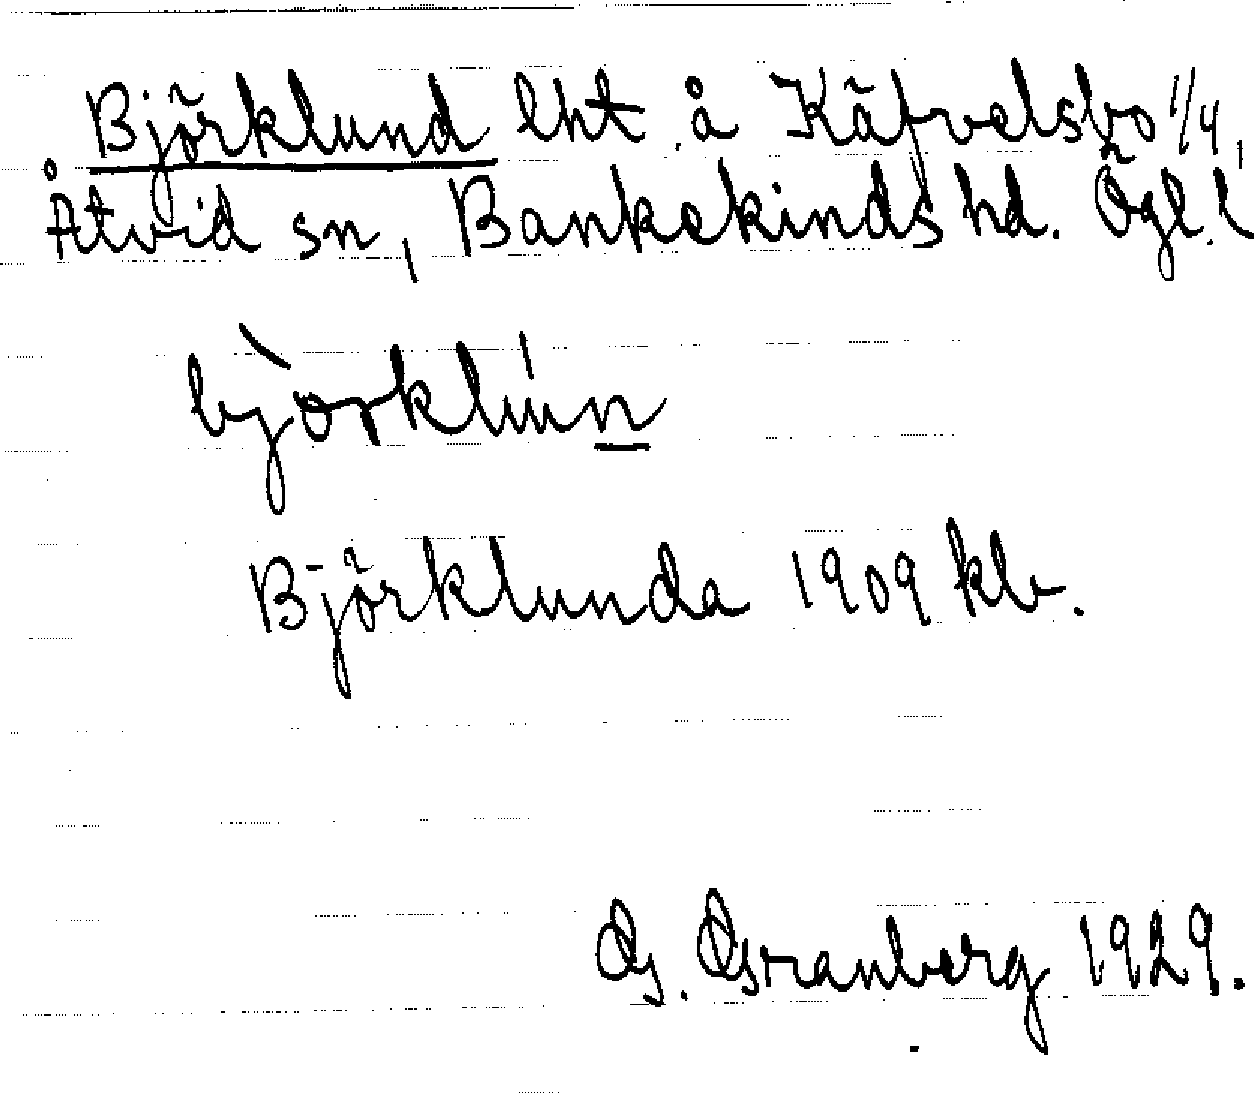 Björklund lht å Käfvelsbo 1/4,
Åtvid sn, Bankekinds hd. Ögl. l
bjòrklún
Björklunda 1909 kb.
G. Granberg 1929.